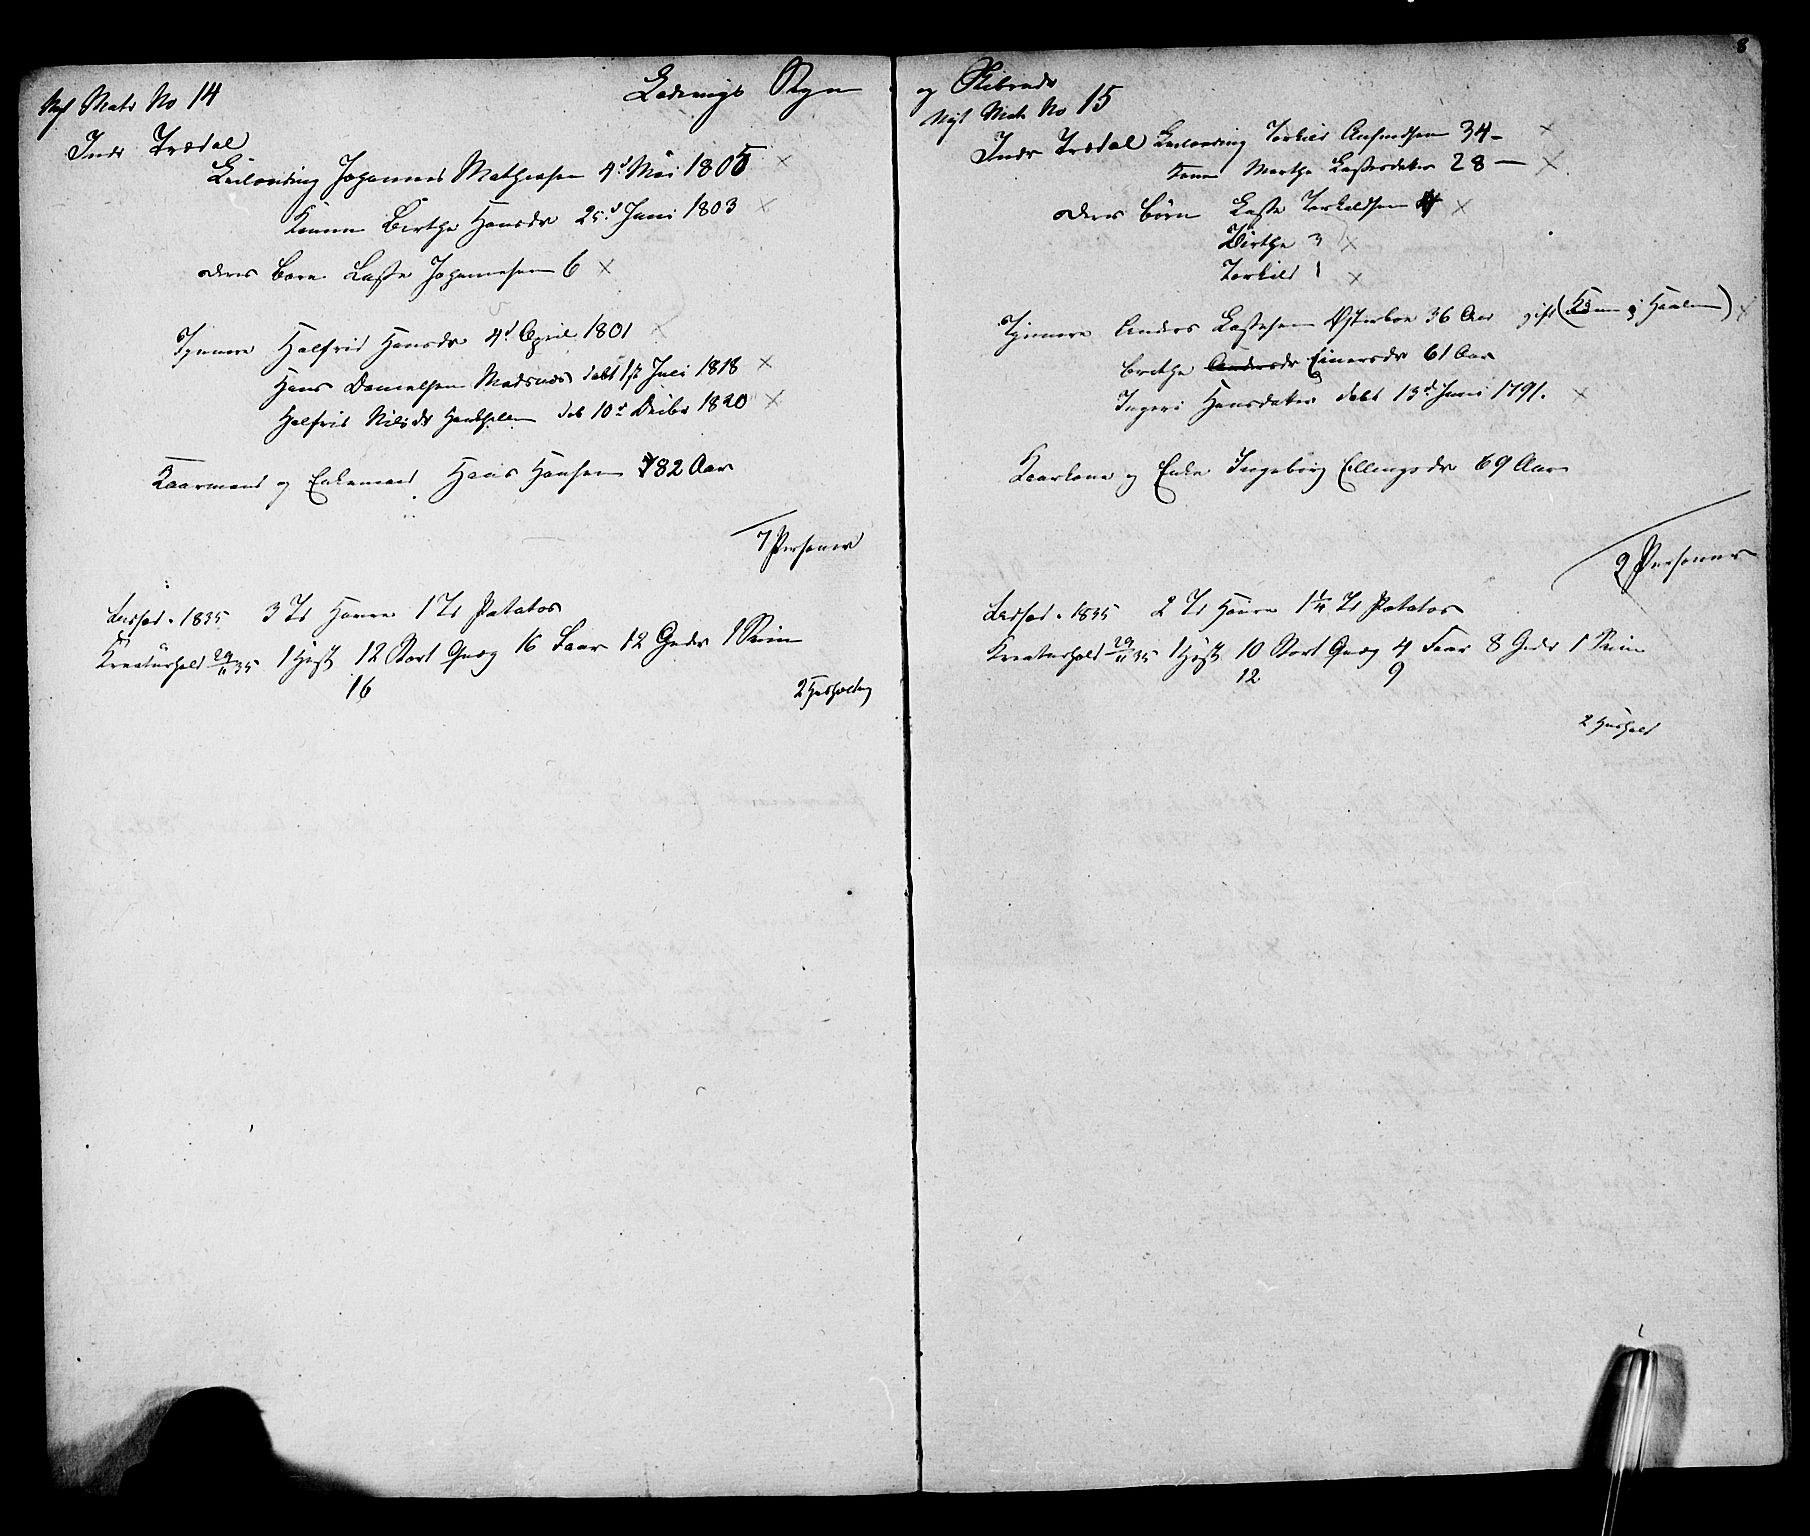 Nyt Matr No 14
Ladvigs Sogn
Indr Trædal
Leilænding Johannes Mathiasen 4d Mai 1805 ×
Konen Birthe Hansdr 25d Juni 1803 ×
deres Barn Lasse Johannesen 6 ×
Tjenere Halfrid Hansdr 4d April 1801 ×
Hans Danielsen døbt 1st Juli 1818 ×
Halfrid Nilsdr døb 10d Decbr 1820 ×
Kaarmand og Enkemand Hans Hansen 82 Aar
7 Personer
Udsæd 1835 3 Td Havre 1 Td Patatos
Kreaturhold 29/11 35 1 Hest 12 Stort Qvæg 16 Faar 12 Geder 1 Sviin
16
2 Husholdng
8
og
Nyt Matr No 15
Indr Trædal Leilænding Torkild Aamundsen 34 - ×
Konen Marthe Lassesdatter 28 - ×
deres Børn Lasse Torkildsen ×
Birthe 3 ×
Torkild 1 ×
Tjenere Anders Lassesen Østerboe 36 Aar gift (Konen i ) ×
Brithe Andersdr Einersdr 61 Aar
Ingeri Hansdatter døbt 13d Juni 1791. ×
Kaarkone og Enke Ingeborg Ellingsdr 69 Aar
9 Personer
Udsæd 1835 2 Td Havre 1 1/4 Td Patatos
Kreaturhold 29/11 35 1 Hest 10 Stort Qvæg 4 Faar 8 Geder 1 Sviin
12 9
2 Hushold